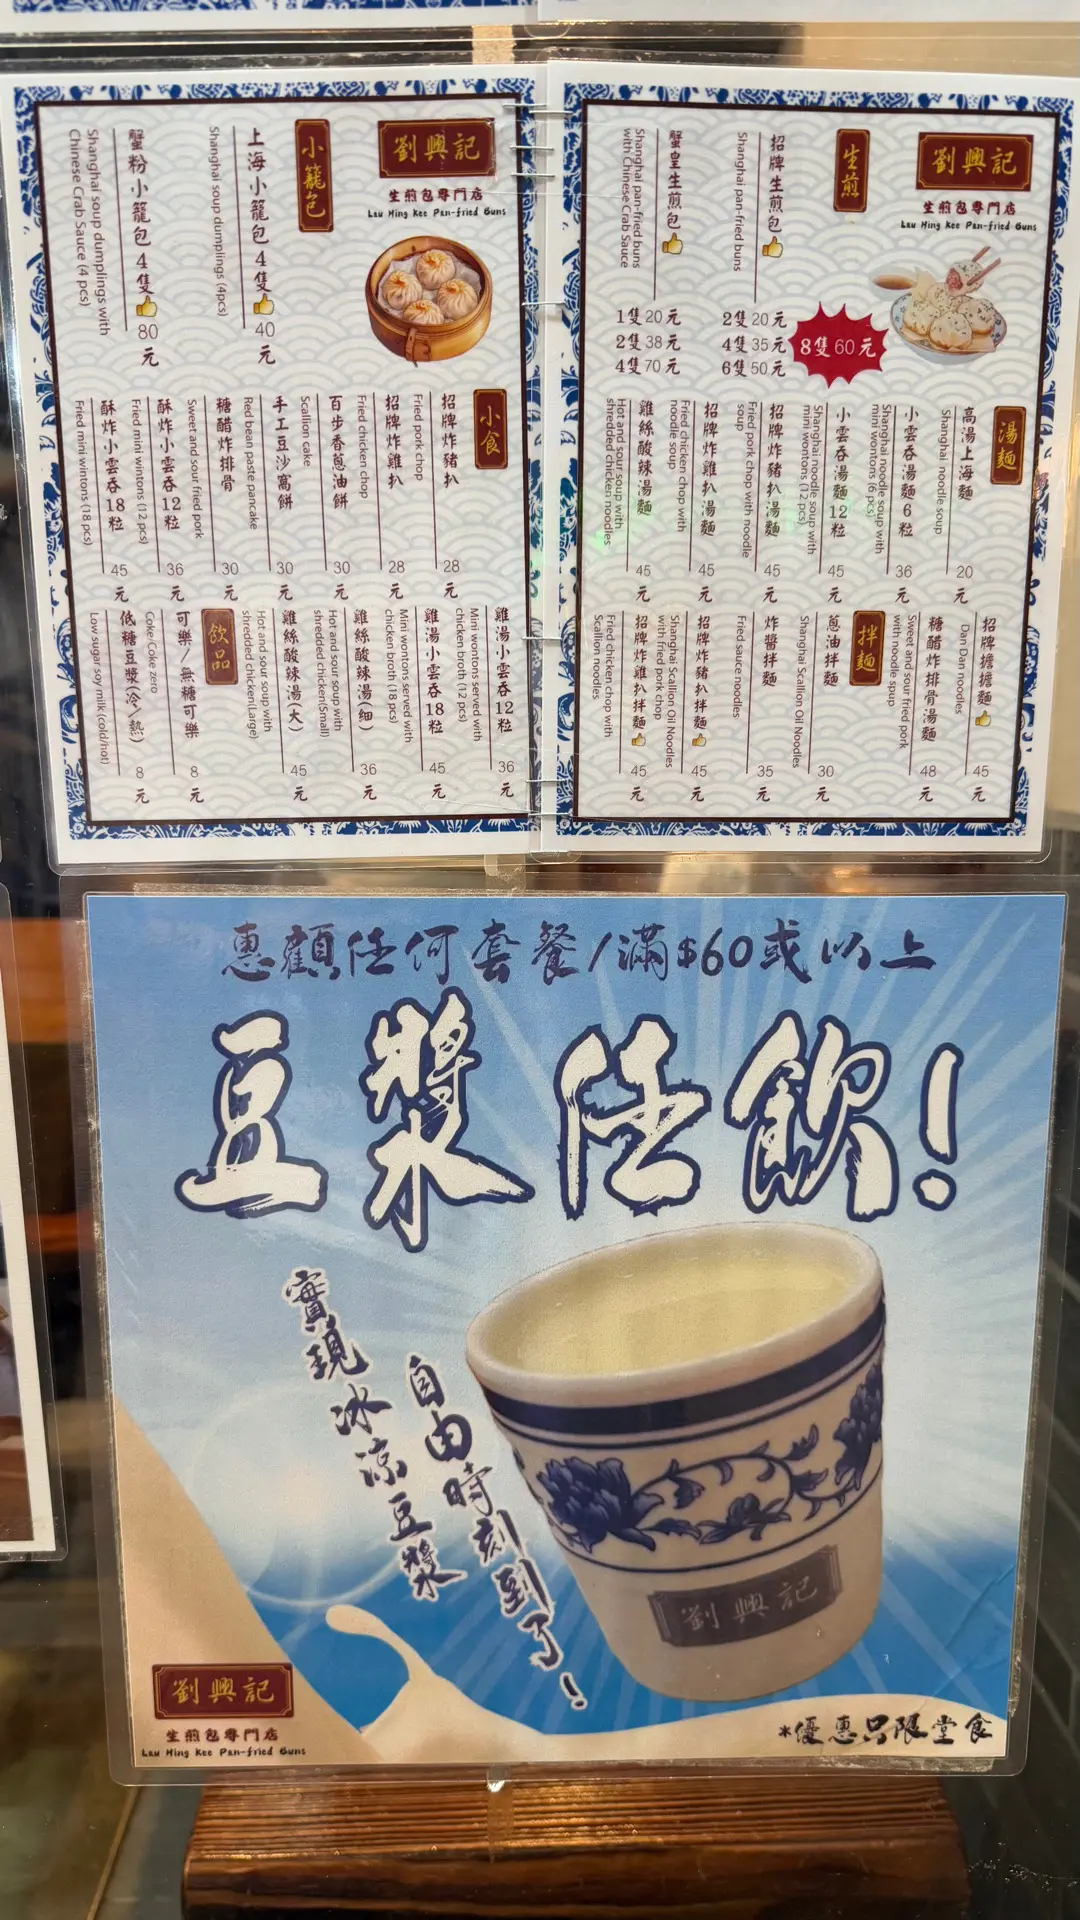 劉興記
生煎包專門店
Lau Hing Kee Pan-fried Buns
小籠包
上海小籠包4隻
Shanghai soup dumplings (4pcs)
40元
蟹粉小籠包4隻
Shanghai soup dumplings with
Chinese Crab Sauce (4 pcs)
80元
小食
招牌炸豬扒
Fried pork chop
28元
招牌炸雞扒
Fried chicken chop
28元
百步香蔥油餅
Scallion cake
30元
手工豆沙窩餅
Red bean paste pancake
30元
糖醋炸排骨
Sweet and sour fried pork
30元
酥炸小雲吞12粒
Fried mini wintons (12 pcs)
36元
酥炸小雲吞18粒
Fried mini wintons (18 pcs)
45元
雞湯小雲吞12粒
Mini wontons served with
chicken broth (12 pcs)
36元
雞湯小雲吞18粒
Mini wontons served with
chicken broth (18 pcs)
45元
雞絲酸辣湯(細)
Hot and sour soup with
shredded chicken(Small)
36元
雞絲酸辣湯(大)
Hot and sour soup with
shredded chicken(Large)
45元
飲品
可樂/無糖可樂
Coke/Coke zero
8元
低糖豆漿(冷/熱)
Low sugar soy milk (cold/hot)
8元
劉興記
生煎包專門店
Lau Hing Kee Pan-fried Buns
生煎
招牌生煎包
Shanghai pan-fried buns
2隻20元
4隻35元
6隻50元
8隻60元
蟹皇生煎包
Shanghai pan-fried buns
with Chinese Crab Sauce
1隻20元
2隻38元
4隻70元
湯麵
高湯上海麵
Shanghai noodle soup
20元
小雲吞湯麵6粒
Shanghai noodle soup with
mini wontons (6 pcs)
36元
小雲吞湯麵12粒
Shanghai noodle soup with
mini wontons (12 pcs)
45元
招牌炸豬扒湯麵
Fried pork chop with noodle
soup
45元
招牌炸雞扒湯麵
Fried chicken chop with
noodle soup
45元
雞絲酸辣湯麵
Hot and sour soup with
shredded chicken noodles
45元
招牌擔擔麵
Dan Dan noodles
45元
糖醋炸排骨湯麵
Sweet and sour fried pork
with noodle spup
48元
拌麵
蔥油拌麵
Shanghai Scallion Oil Noodles
30元
炸醬拌麵
Fried sauce noodles
35元
招牌炸豬扒拌麵
Shanghai Scallion Oil Noodles
with fried pork chop
45元
招牌炸雞扒拌麵
Fried chicken chop with
Scallion noodles
45元
惠顧任何套餐/滿$60或以上
豆漿任飲!
實現冰涼豆漿
自由時刻到了!
劉興記
劉興記
生煎包專門店
Lau Hing Kee Pan-fried Buns
*優惠只限堂食